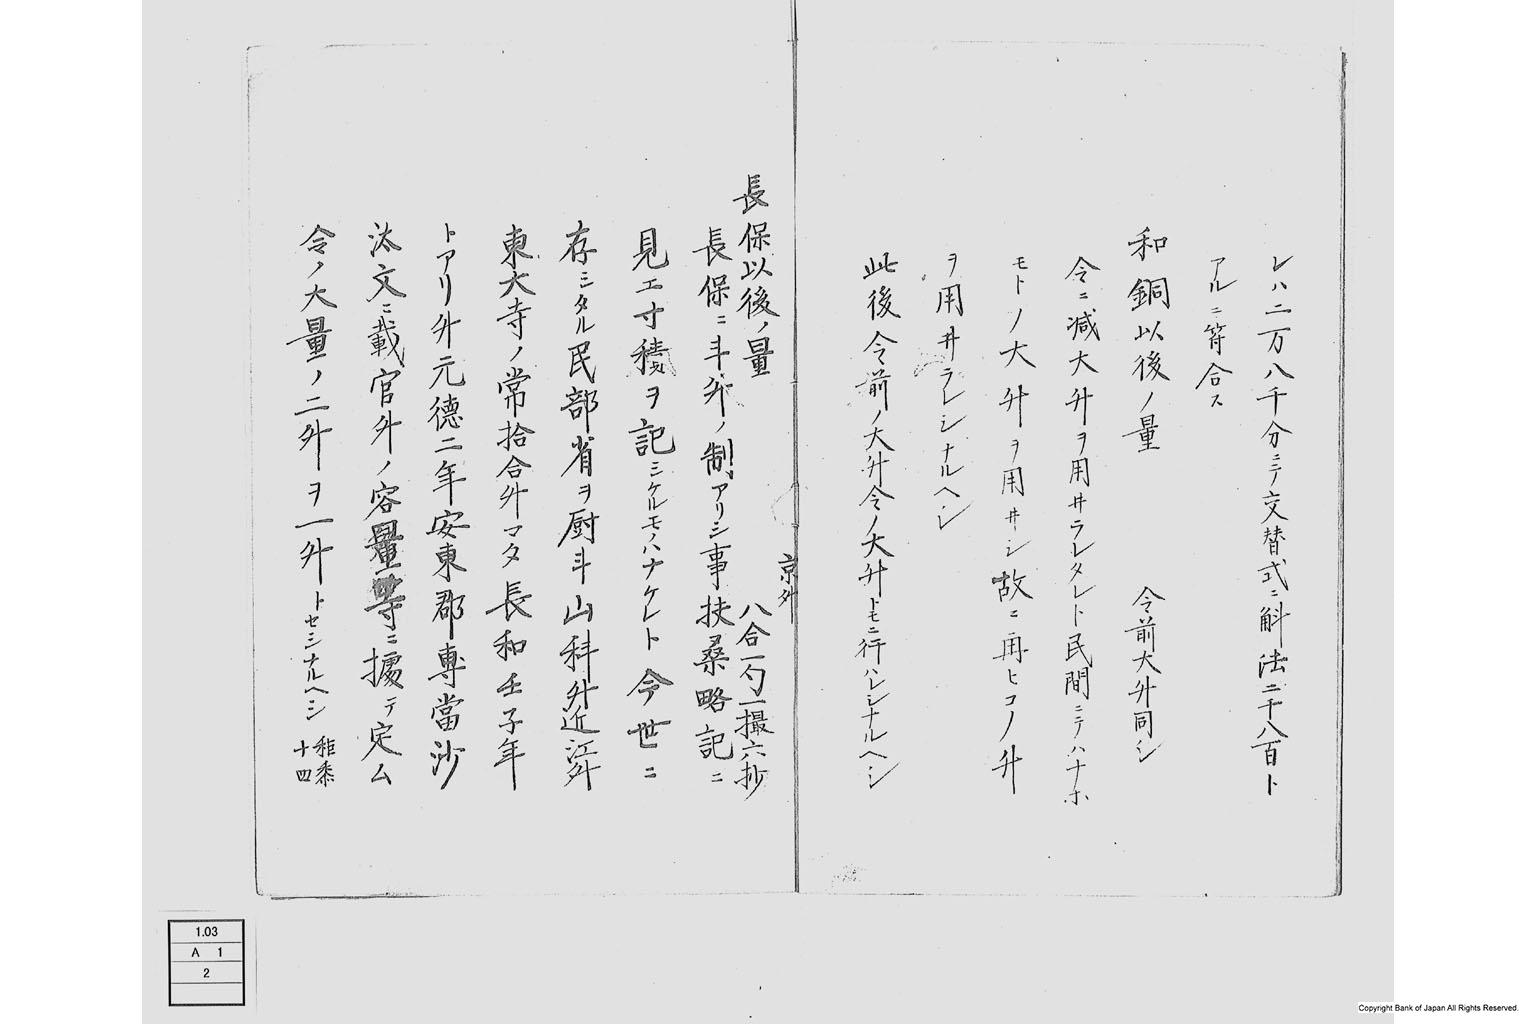 レハ二万八千分ニテ交替式ニ斛法二千八百ト
アルニ符合ス
和銅以後ノ量 令前大升同シ
令ニ減大升ヲ用井ラレタレト民間ニテハナホ
モトノ大升ヲ用井シ故ニ再ヒコノ升
ヲ用井ラレシナルヘシ
此後令前ノ大升令ノ大升トモニ行ハレシナルヘシ
京升
長保以後ノ量 八合一勺一撮六抄
長保ニ斗升ノ制アリシ事扶桑略記ニ
見エ寸積ヲ記シケルモノハナケレト今世ニ
存シタル民部省ヲ厨斗山科升近江升
東大寺ノ常拾合升マタ長和壬子年
トアリ升元徳二年安東郡專當沙
汰文ニ載官升ノ容量等ニ據テ定ム
令ノ大量ノ二升ヲ一升トセシナルヘシ 秬黍
十四
1.03
A 1
2
Copyright Bank of Japan All Rights Reserved.